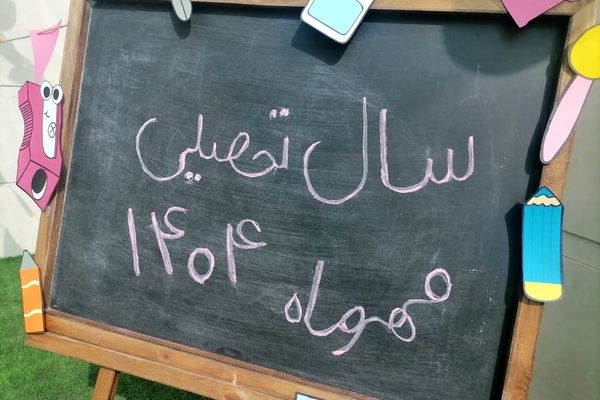 سال تحصیلی
۱۴۰۴
مهرماه